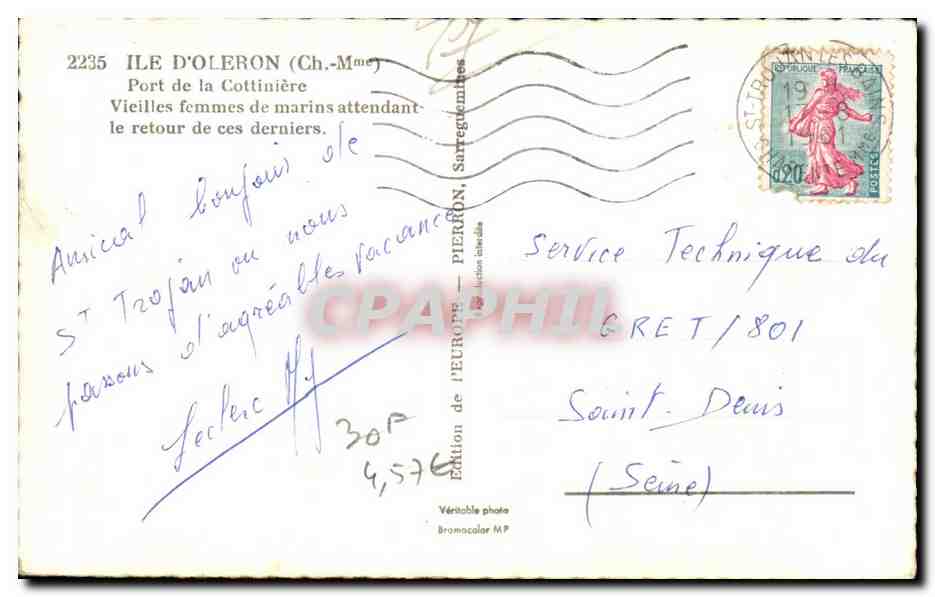 2235 ILE D'OLERON (Ch.-Mme)
Port de la Cottinière
Vieilles femmes de marins attendant
le retour de ces derniers.
Amical bonjour de
St Trojan ou nous
passons d'agréables vacances
Leclerc
30F
4,57€
Edition de l'EUROPE — PIERRON, Sarreguemines
Reproduction interdite
Véritable photo
Bromocolor MP
REPUBLIQUE FRANÇAISE
0,20
POSTES
ST-TROJAN
Service Technique du
GRET/801
Saint-Denis
(Seine)
CPAPHIL